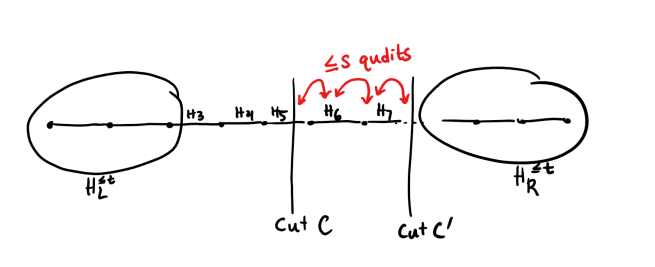 ≤s qudits
H₃ H₄ H₅ H₆ H₇
H_L^{≤t}
H_R^{≤t}
Cut C
Cut C'